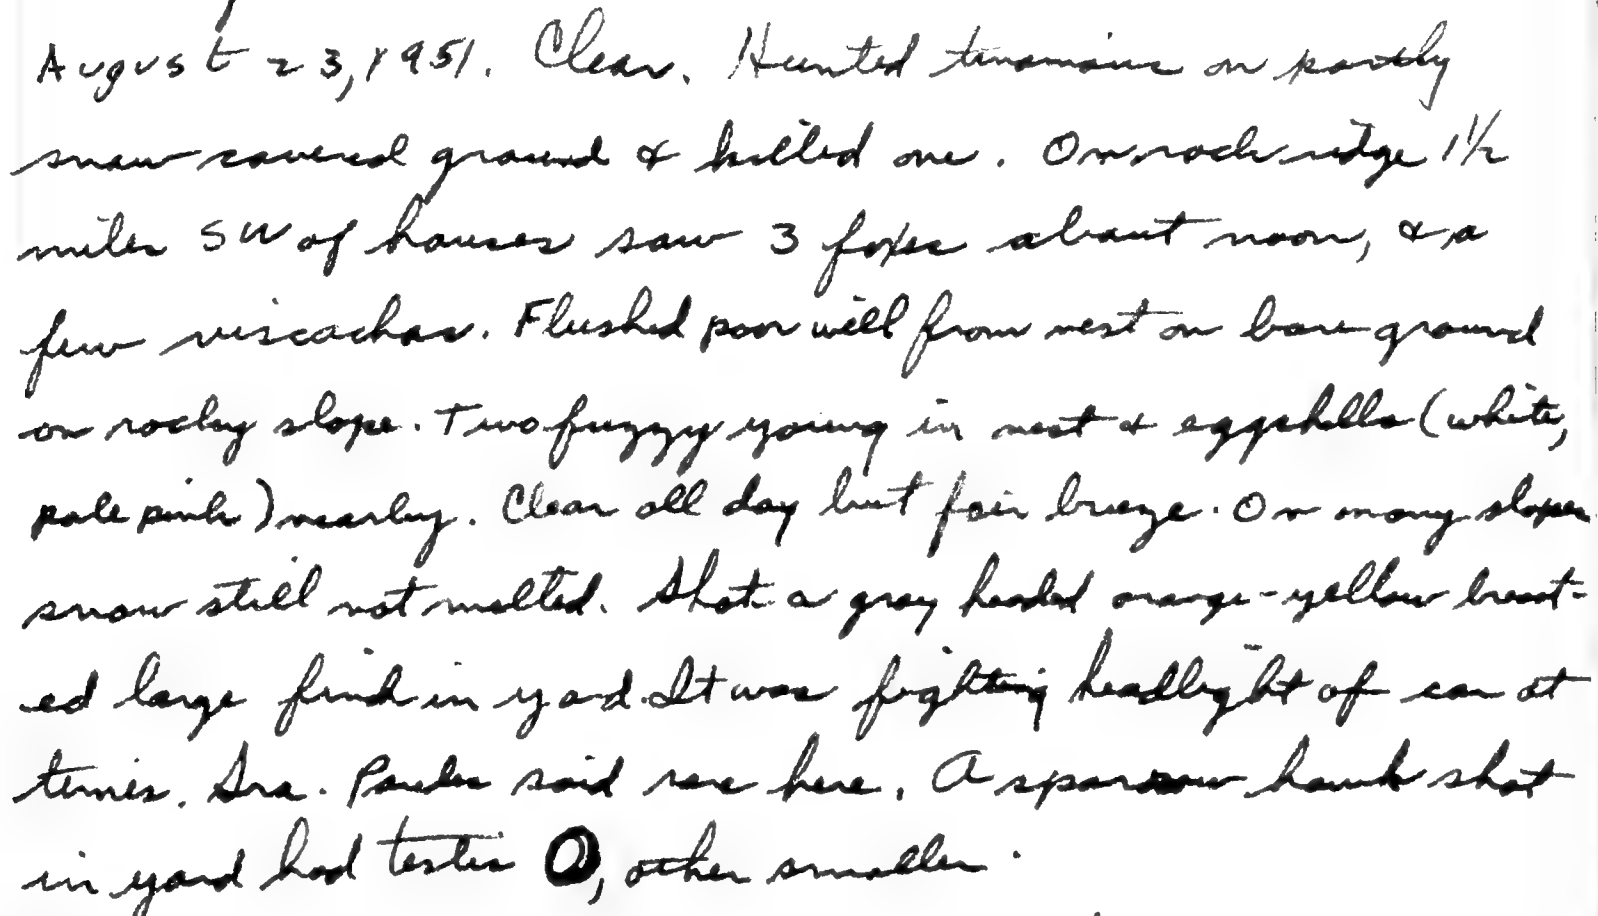 August 23, 1951. Clear. Hunted tinamous on partly
snow covered ground & killed one. On rock ridge 1 1/2
miles SW of houses saw 3 foxes about noon, & a
few viscachas. Flushed poor will from nest on bare ground
on rocky slope. Two fuzzy young in nest & eggshells (white,
pale pink) nearby. Clear all day but fair breeze. On many slopes
snow still not melted. Shot a gray headed orange-yellow breast-
ed large finch in yard. It was fighting headlight of car at
times. Sra. said rare here. A sparrow hawk shot
in yard had testis O, other smaller.